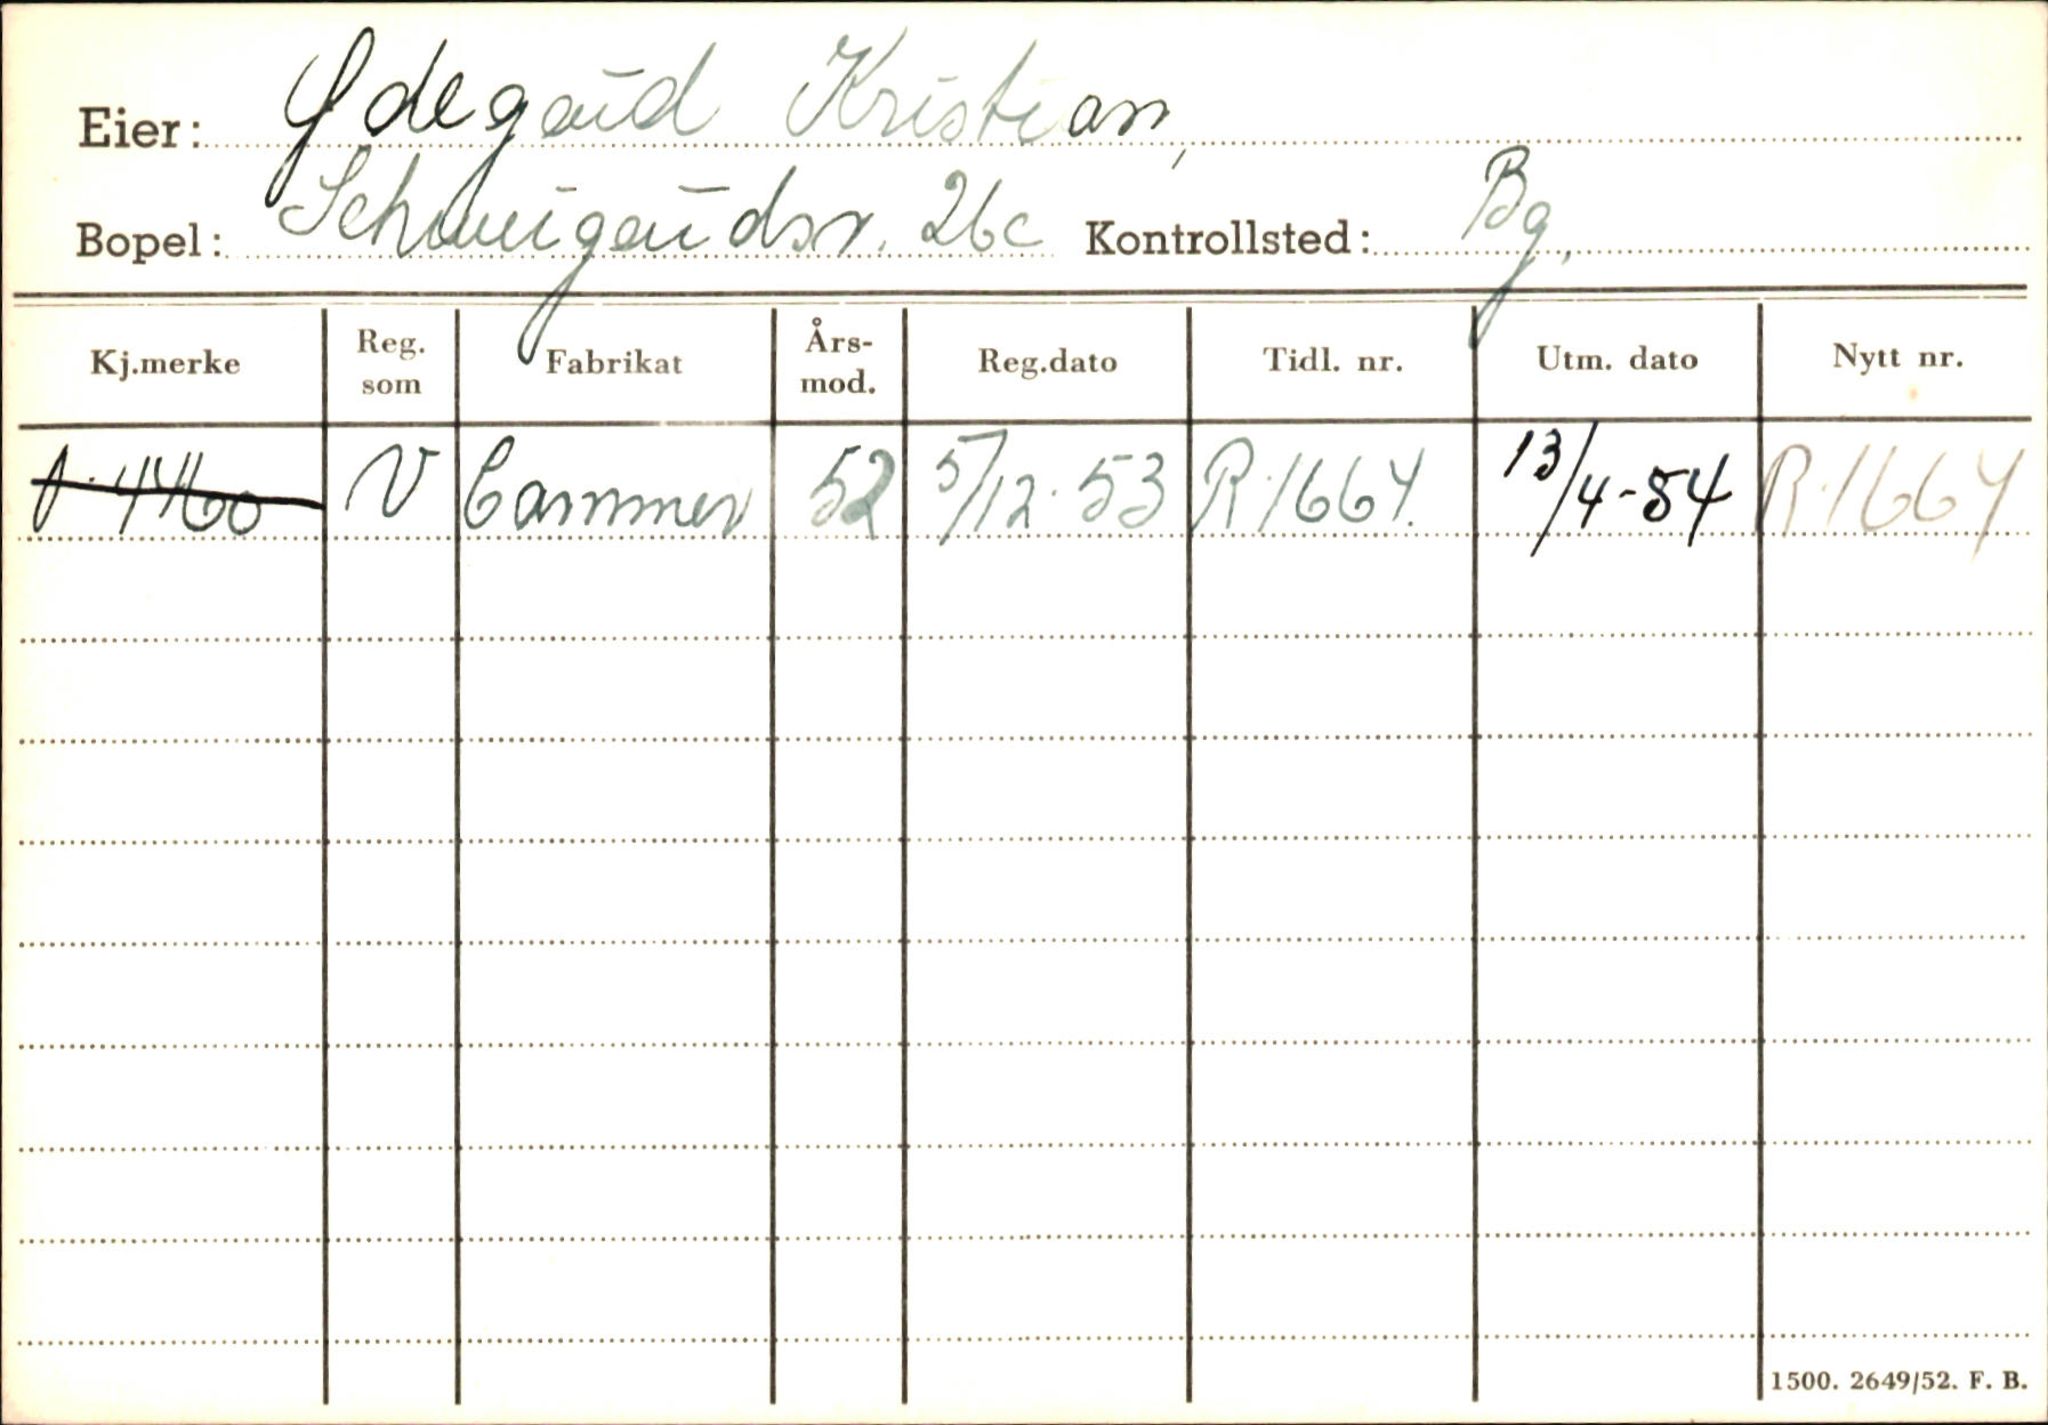 Eier: Ydegård Kristian,
Bopel: Schweigårdsv. 26c Kontrollsted: Bg.
Kj.merke Reg. som Fabrikat Års-mod. Reg.dato Tidl. nr. Utm. dato Nytt nr.
V Commer 52 5/12-53 R-1664. 13/4-54 R-1664
1500. 2649/52. F. B.